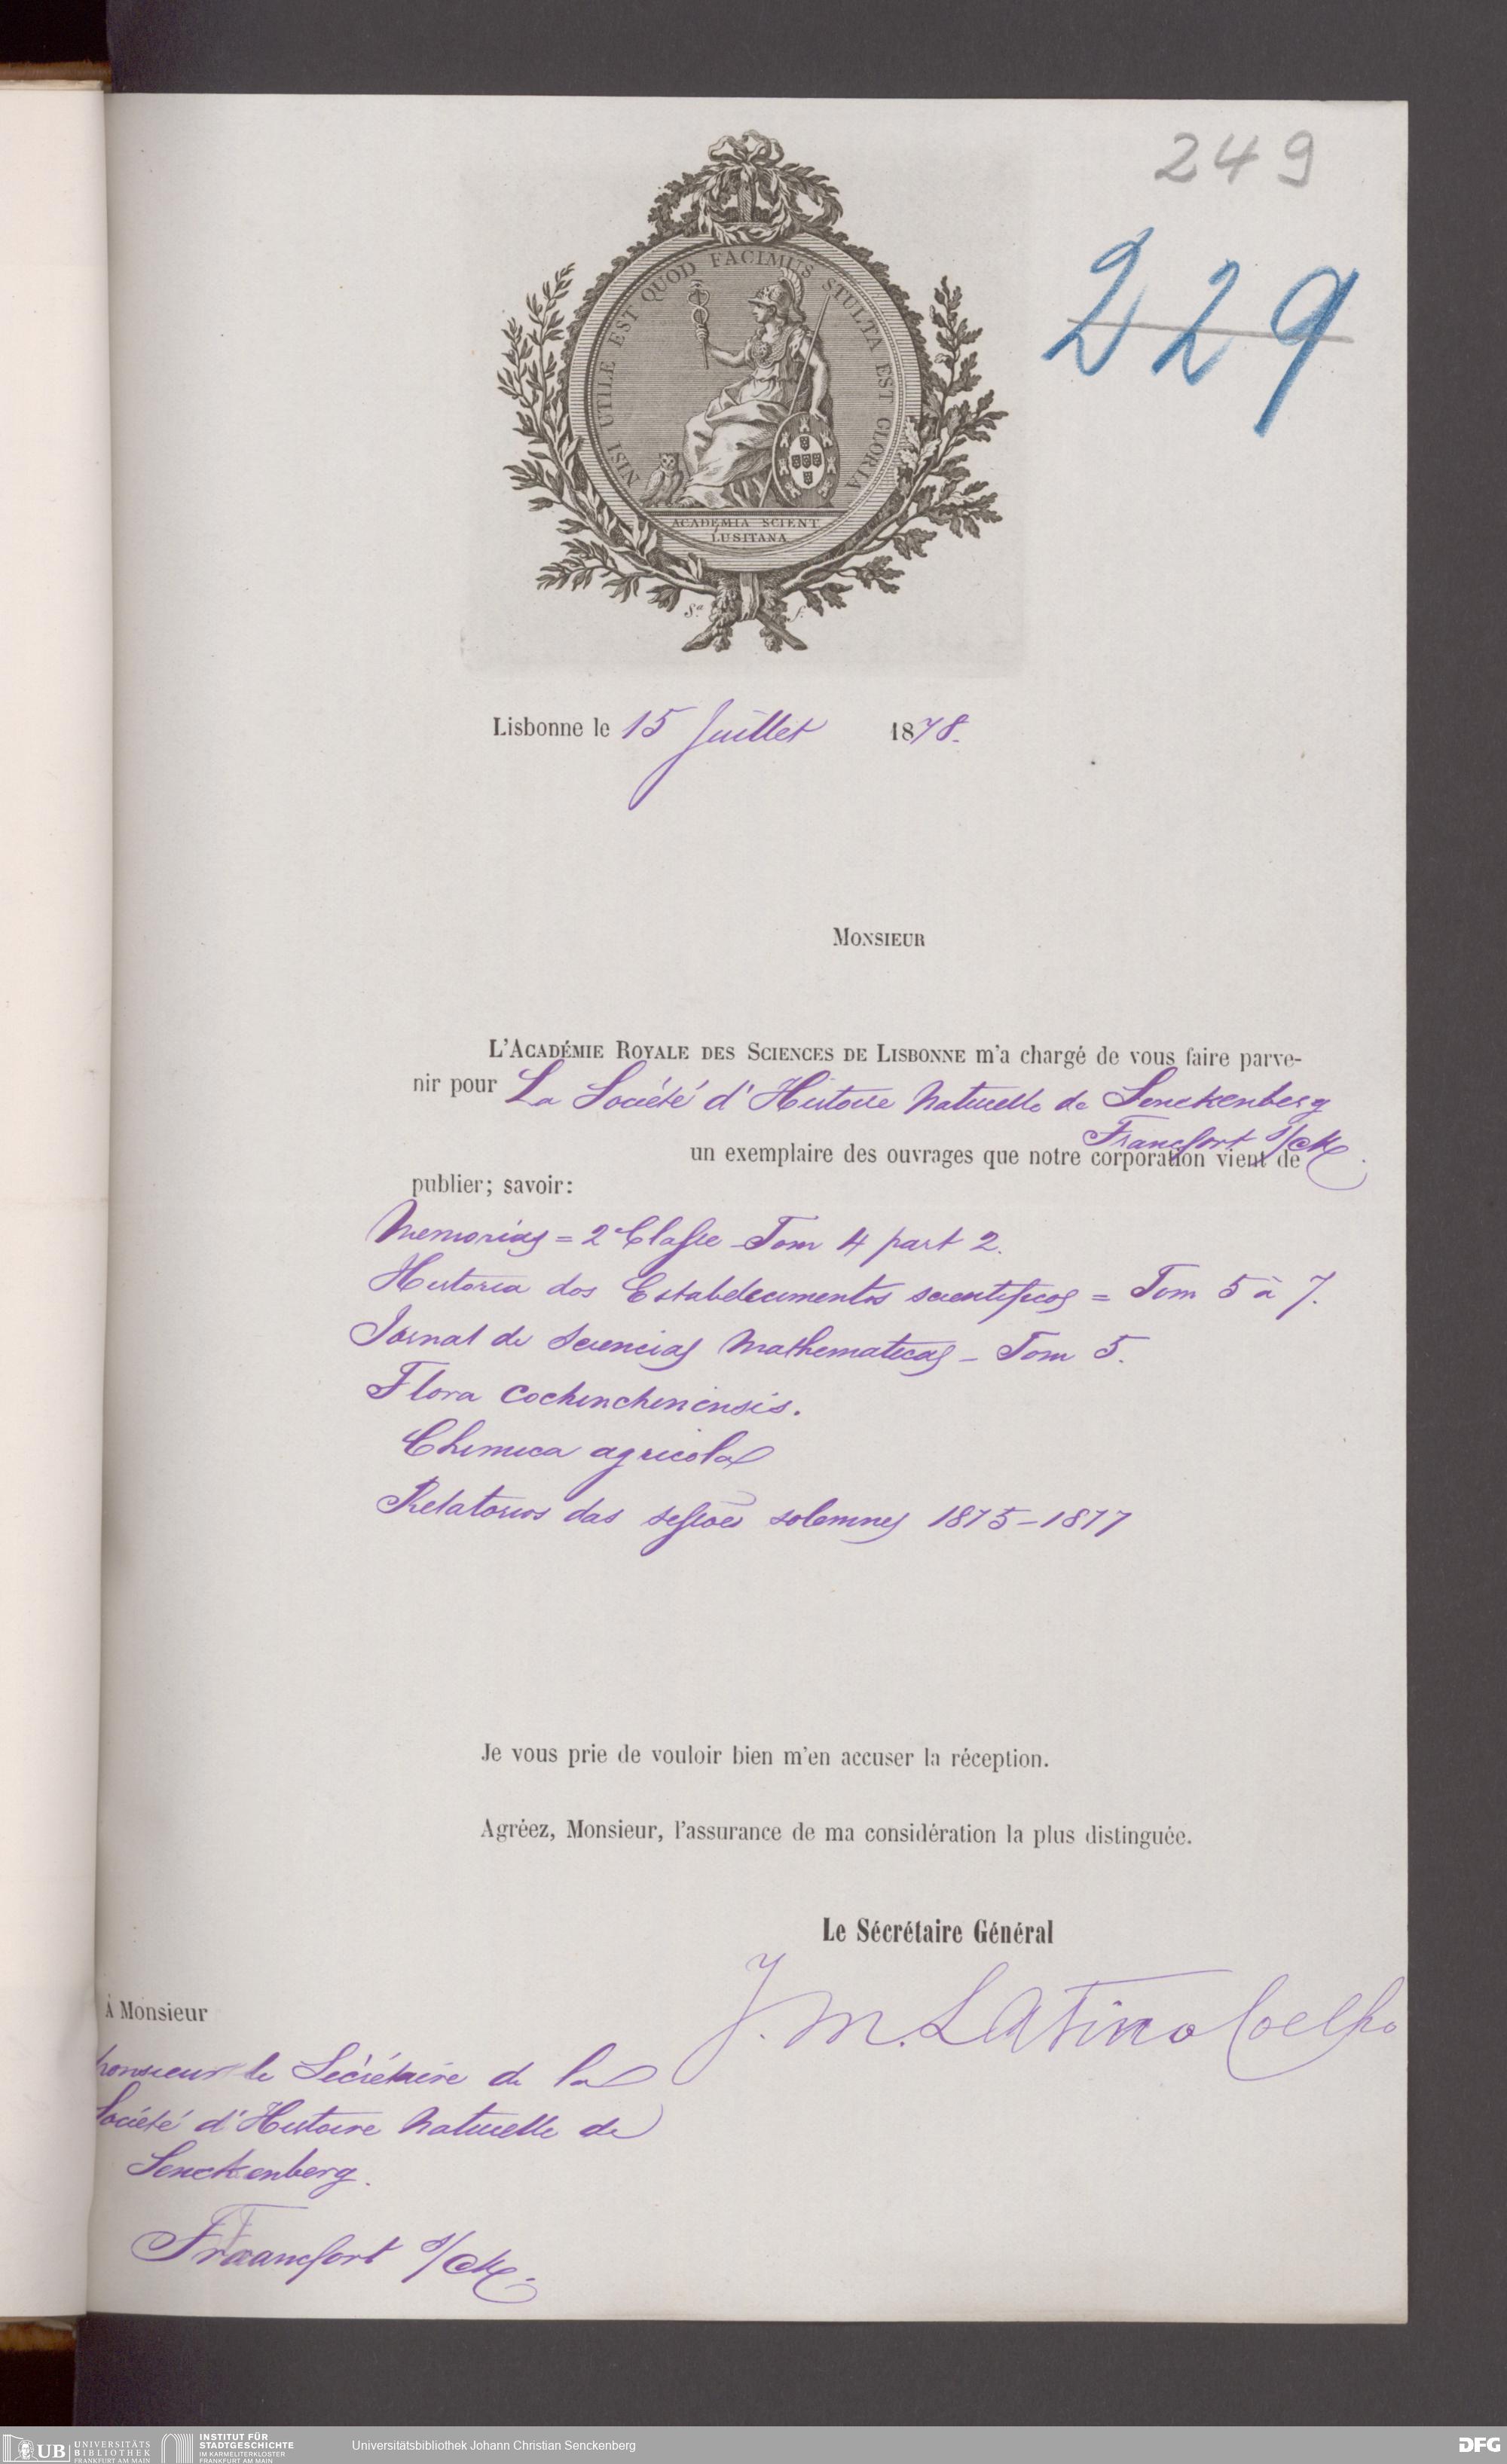 249
229
NISI UTILE EST QUOD FACIMUS STULTA EST GLORIA
ACADEMIA SCIENT
LUSITANA
Sa. f.
Lisbonne le 15 Juillet 1878.
MONSIEUR
L'ACADÉMIE ROYALE DES SCIENCES DE LISBONNE m'a chargé de vous faire parve-
nir pour La Société d'Histoire Naturelle de Senckenberg
Francfort s/M
un exemplaire des ouvrages que notre corporation vient de
publier; savoir:
Memorias = 2e Classe - Tom 4 part 2.
Historia dos Estabelecimentos scientificos = Tom 5 à 7.
Jornal de Sciencias Mathematicas - Tom 5.
Flora Cochinchinensis.
Chimica agricola
Relatorios das sessões solemnes 1875-1877
Je vous prie de vouloir bien m'en accuser la réception.
Agréez, Monsieur, l'assurance de ma considération la plus distinguée.
Le Sécrétaire Général
J. M. Latino Coelho
À Monsieur
Monsieur le Secrétaire de la
Société d'Histoire Naturelle de
Senckenberg.
Fraancfort s/M.
UB UNIVERSITÄTS
BIBLIOTHEK
FRANKFURT AM MAIN
INSTITUT FÜR
STADTGESCHICHTE
IM KARMELITERKLOSTER
FRANKFURT AM MAIN
Universitätsbibliothek Johann Christian Senckenberg
DFG